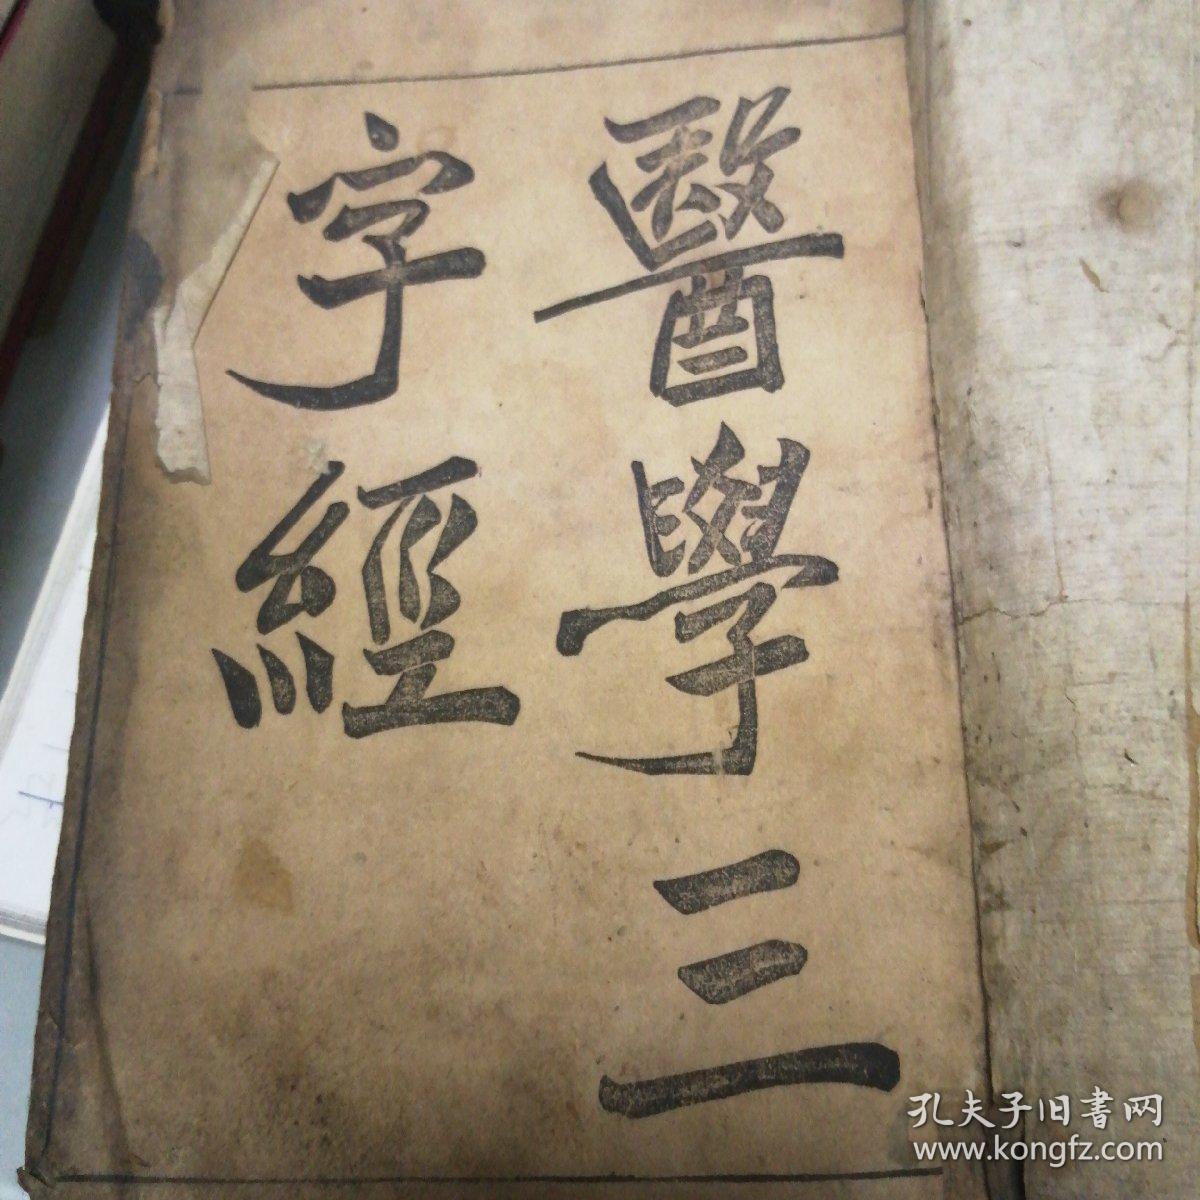 醫學三
字經
孔夫子旧書网
www.kongfz.com